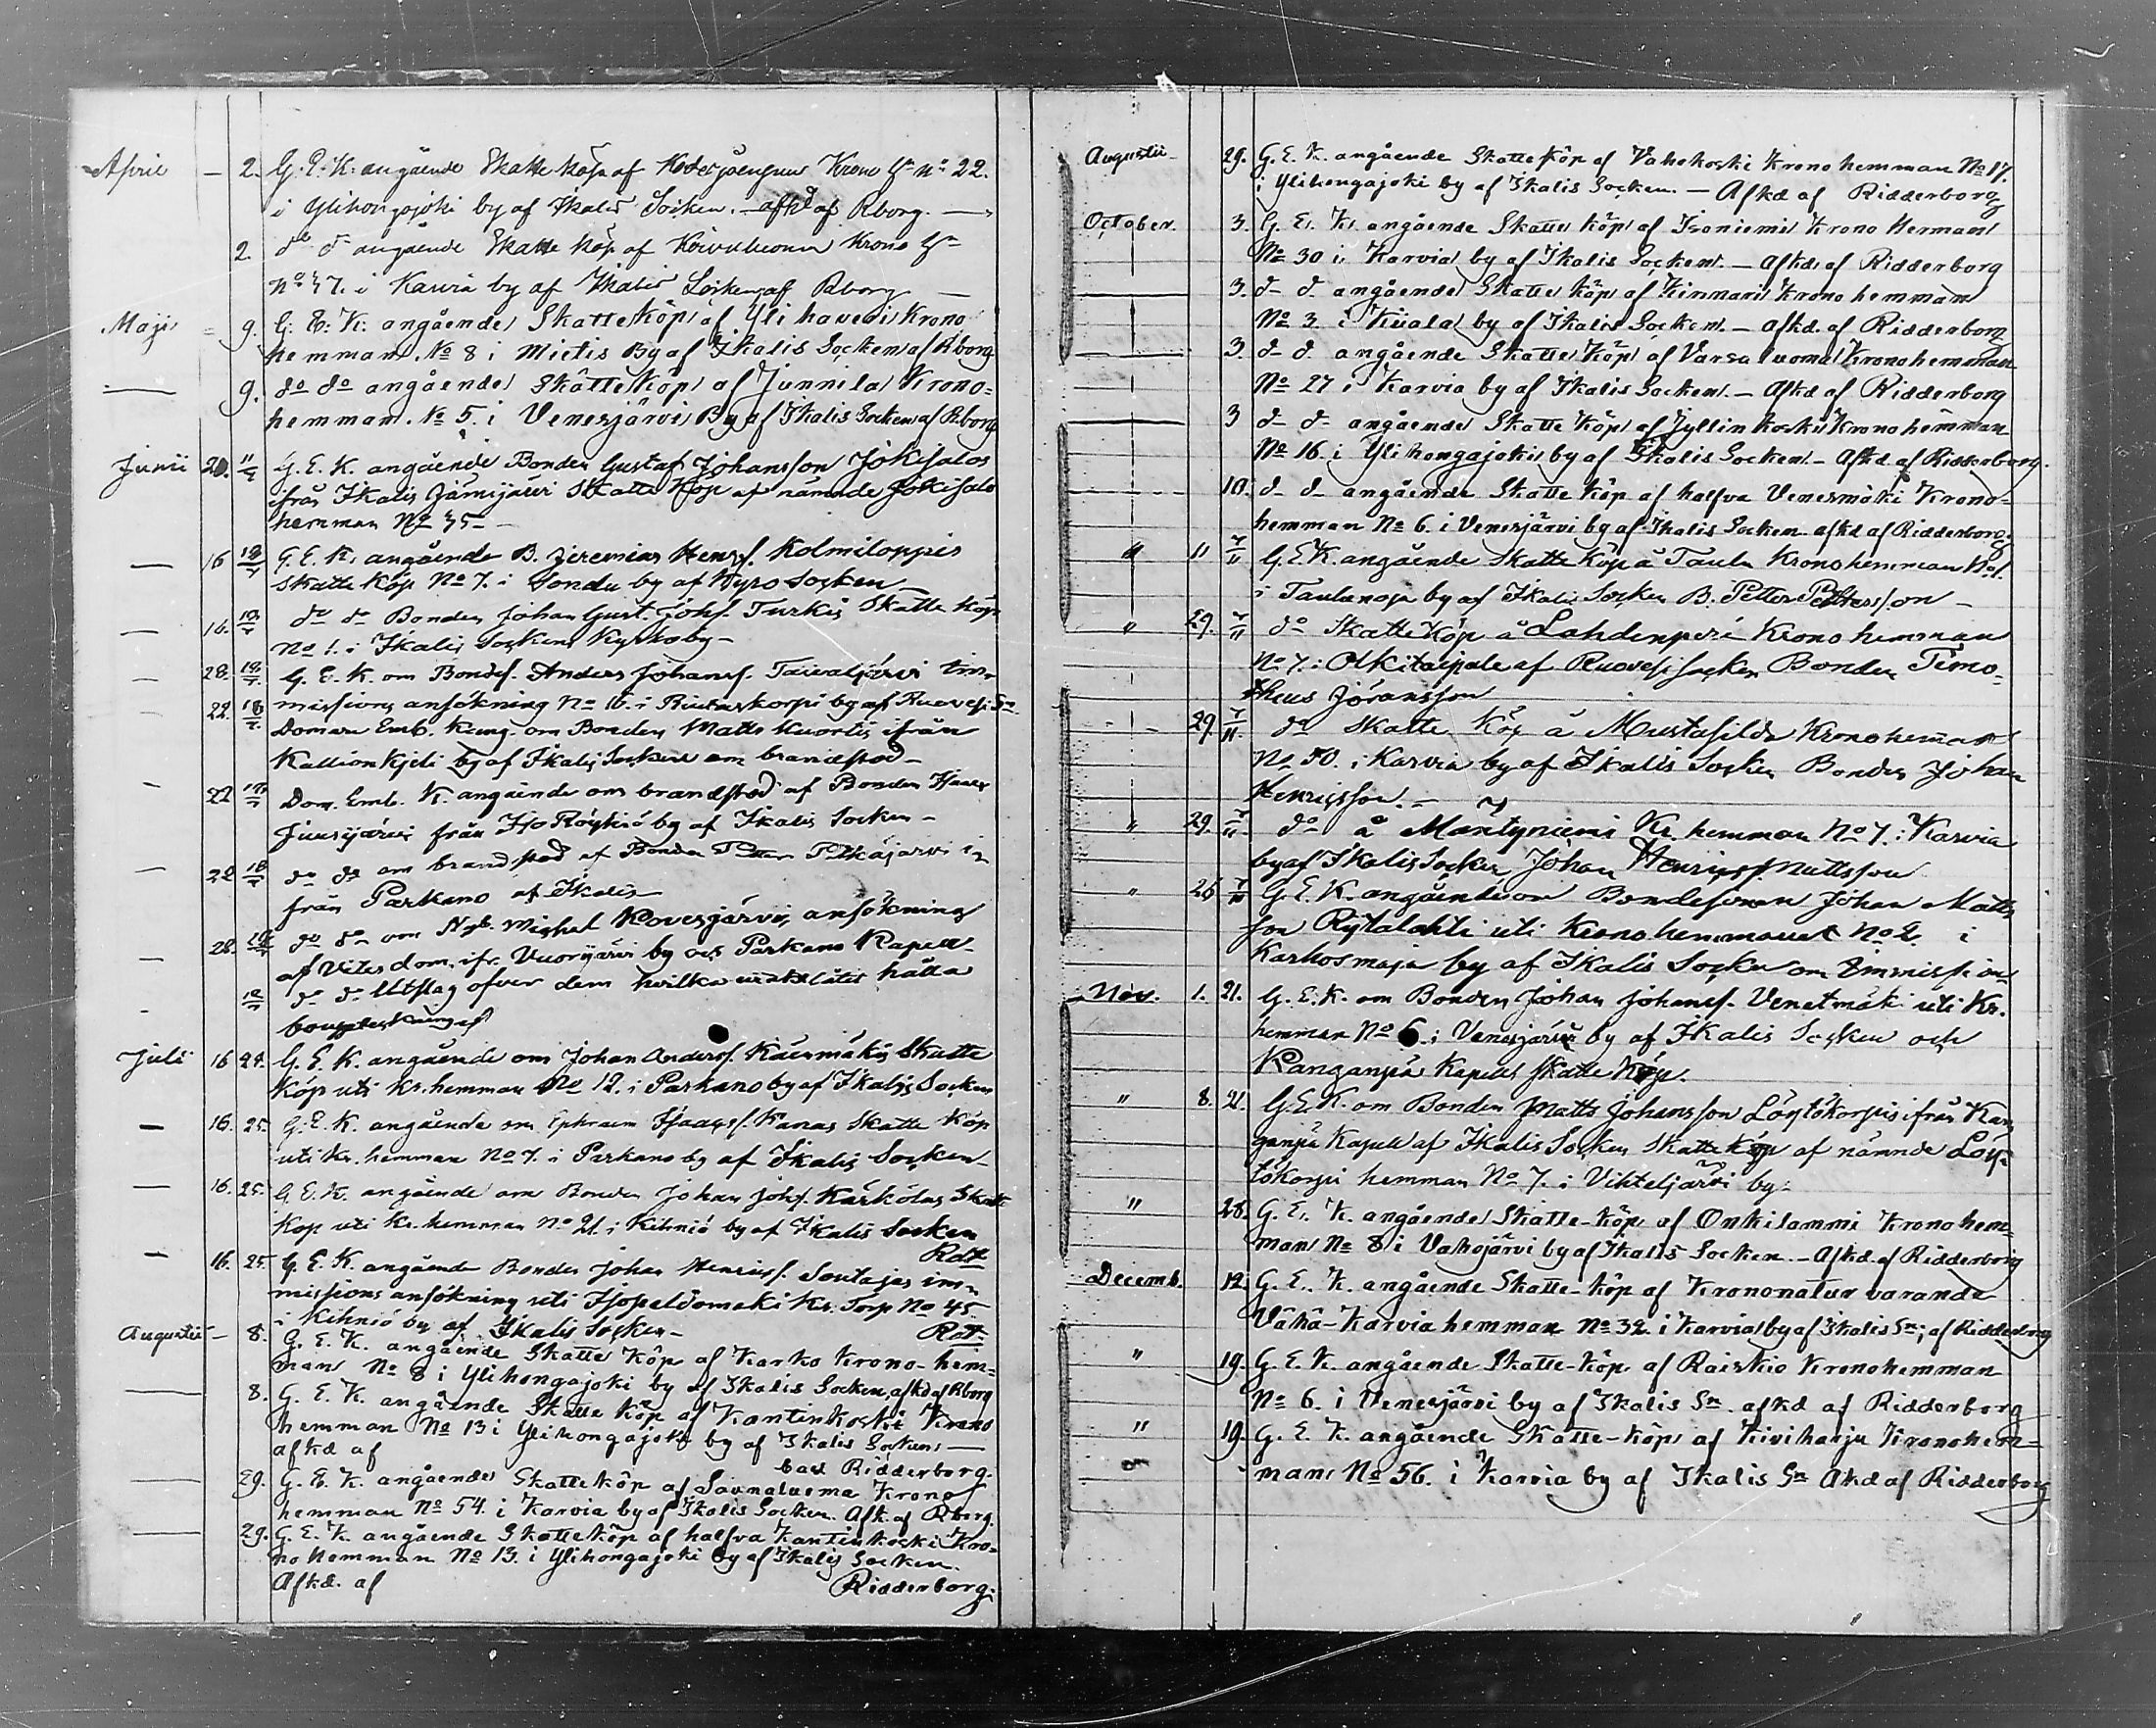 April — 2. G. E. K. angående Skatte köp af Krono Hn No 22.
i Ylihongojoki by af Ikalis Socken. — afkd af Rborg. —
2. do do angående Skatte köp af Koivuluoma Krono Hn
No 47. i Karvia by af Ikalis Socken af Rborg —
Maji 9. G. E. K. angående Skatteköp af Ylihaveri Krono
hemman No 8 i Mietis By af Ikalis Socken af Rborg
— 9. do do angående Skatteköp af Junnila Krono=
hemman. No 5. i Venesjärvi By af Ikalis Socken af Rborg
Junii 20. 11/7 G. E. K. angående Bonden Gustaf Johansson Jokisalos
ifrån Ikalis Jämijärvi Skatte Köp af nämnde Jokisalo
hemman No 35 —
— 16 18/7 G. E. K. angående B. Jeremias Henrs. Kolmiloppis
Skatte köp No 7. i by af Kyro Socken —
— 16. 18/7 do do Bonden Johan Gust. Johs. Turkis Skatte köp
No 1. i Ikalis Sockens Kyrkoby —
— 28. 18/7 G. E. K. om Bondes. Anders Johans. Taivaljärvi im-
missions ansökning No 16. i by af Ruovesi Sn
22. 18/7 Domare Emb. Kung. om Bonden Matts Kuortis ifrån
Kallionkjeli by af Ikalis Socken om brandstod —
— 22 18/7 Dom. Emb. K. angående om brandstod af Bonden Isaac
Juusijärvi från Iso Röyhiö by af Ikalis Socken —
— 22 18/7 do do om brandstod af Bonden Petter Pitkäjärvi
från Parkano af Ikalis
— 28. 18/7 do do om Nyb. Mighel Kovesjärvis ansökning
af Vites dom. ifr. Vuorijärvi by och Parkano Kapell
- 18/7 do do Utslag öfver dem hvilka hålla
Juli 16 24. G. E. K. angående om Johan Anders. Käenmäkis Skatte
Köp uti Kr. hemman No 12. i Parkano by af Ikalis Socken
— 16. 25. G. E. K. angående om Ephraim Isaacs. Kanas Skatte Köp
uti Kr. hemman No 7. i Parkano by af Ikalis Socken —
— 16. 25. G. E. K. angående om Bonden Johan Johs. Kärkölas Skatte
Köp uti Kr. hemman No 21. i Kihniö by af Ikalis Socken
Rot
— 16. 25. G. E. K. angående Bonden Johan Henrics. im-
missions ansökning uti Kr. Torp No 45
i Kihniö by af Ikalis Socken — Rot.
Augustii — 8. G. E. K. angående Skatte Köp af Karko Krono-hem=
man No 8 i Ylihongajoki by af Ikalis Socken, afkd af Rborg
— 8. G. E. K. angående Skatte Köp af Kantinkoski Krono
hemman No 13 i Ylihongajoki by af Ikalis Sockens —
afkd af Ridderborg.
— 29. G. E. K. angående Skatteköp af Saunaluoma Krono
hemman No 54. i Karvia by af Ikalis Socken. Afk. af Rborg.
— 29. G. E. K. angående Skatteköp af halfva Kantinkoski Kro=
no hemman No 13. i Ylihongajoki by af Ikalis Socken.
Afkd. af Ridderborg.
Augustii 29. G. E. K. angående Skatteköp af Vahokoski Krono hemman No 17.
i Ylihongajoki by af Ikalis Socken. — Afkd af Ridderborg
October. 3. G. E. K. angående Skatte köp af Isoniemi Krono Hemman
No 30 i Karvia by af Ikalis Socken. — Afkd. af Ridderborg
3. d- d- angående Skatte köp af Kinnari Krono hemman
No 3. i by af Ikalis Socken. — afkd. af Ridderborg
3. d- d- angående Skatte Köp af Varsaluoma Krono hemman
No 27 i Karvia by af Ikalis Socken. — Afkd af Ridderborg
3 d- d- angående Skatte Köp af Jyllinkoski Krono hemman
No 16. i Ylihongajoki by af Ikalis Socken. — Afkd. af Ridderborg.
10. d- d- angående Skatte köp af halfva Venesmäki Krono=
hemman No 6. i Venesjärvi by af Ikalis Socken afkd af Ridderborg.
" 11 7/11 G. E. K. angående Skatte Köp å Taula Kronohemman No 1.
i by af Ikalis Socken B. Petter Pettersson —
" 29. 7/11 do Skatte Köp å Lahdenperä Krono hemman
No 7. i Olkitaipale af Ruovesi socken Bonden Timo-
theus Jöransson
29. 7/11 do Skatte Köp å Kronohemman
No 50. i Karvia by af Ikalis Socken Bonden Johan
Henricsson. —
" 29. 7/11 do å Mantyniemi Kr. hemman No 7. i Karvia
by af Ikalis Socken Johan Henrics. Mattsson
" 26 G. E. K. angående om Bondesonen Johan Matts
son Rytalahti uti Kronohemmanet No 2. i
by af Ikalis Socken om immission
Nov. 1. 21. G. E. K. om Bonden Johan Johans. Venetmäki uti Kr.
hemman No 6. i Venesjärvi by af Ikalis Socken och
Kanganpä Kapells Skatte Köp.
" 8. 21. G. E. K. om Bonden Matts Johansson Löytökorpis ifrån Kan
ganpä Kapell af Ikalis Socken Skatte Köp af nämnde Löy-
tökorpi hemman No 7. i Vihteljärvi by.
" 28. G. E. K. angående Skatte-köp af Onkilammi Kronohem=
man No 8. i Vahojärvi by af Ikalis Socken. — Afkd. af Ridderborg
Decemb. 12. G. E. K. angående Skatte-köp af Krononatur varande
Vähä-Karvia hemman No 32. i Karvia by af Ikalis Sn; af Ridderborg
" 19. G. E. K. angående Skatte-köp af Raiskio Kronohemman
No 6. i Venesjärvi by af Ikalis Sn. afkd af Ridderborg
" 19. G. E. K. angående Skatte-köp af Kiviharju Kronohem=
man No 56. i Karvia by af Ikalis Sn Afkd af Ridderborg